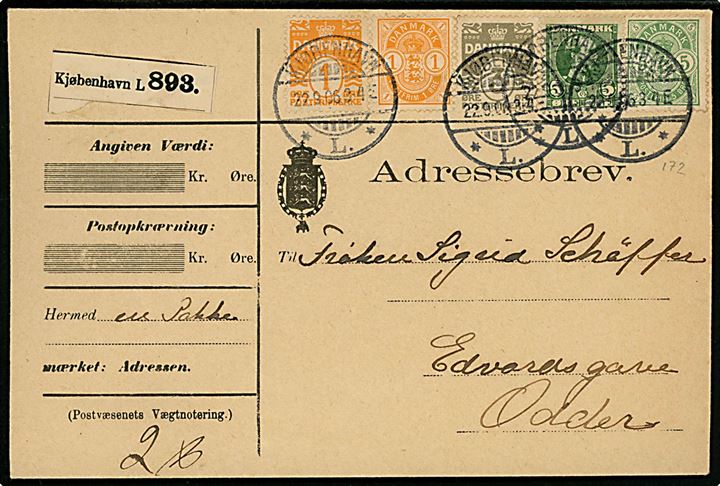 Kjøbenhavn L 893.
Angiven Værdi:
Kr. Øre.
Postopkrævning:
Kr. Øre.
Hermed en Pakke
mærket: Adressen.
(Postvæsenets Vægtnotering.)
2
DANMARK
1
DANMARK
1
DANMARK
DANMARK
5
DANMARK
5
KJØBENHAVN
22.9.06.3-4 E
L.
22.9.06.3-4
L.
L.
3-4 E
L.
172
Adressebrev.
Til Frøken Sigrid Schäffer
Edvardsgave
Odder